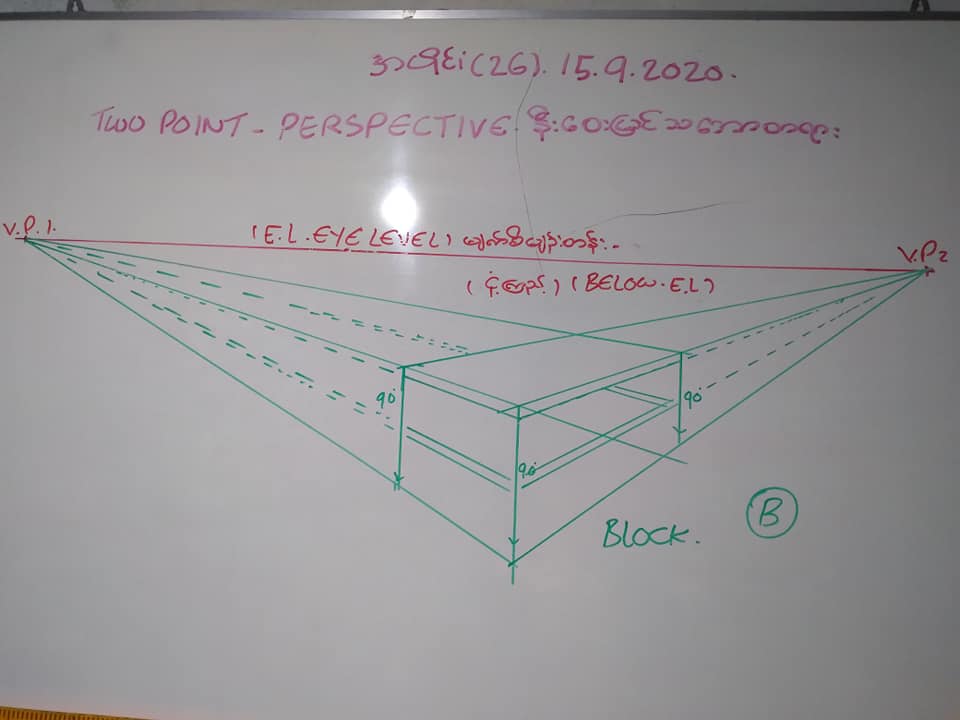 အပိုင်း(26). 15.9.2020.
TWO POINT - PERSPECTIVE နီးဝေးမြင်သဘောတရား
V.P.1.
(E.L. EYE LEVEL) မျက်စိမျဉ်းတန်း..
V.P2
(BELOW.E.L)
90°
90°
90°
BLOCK.
B